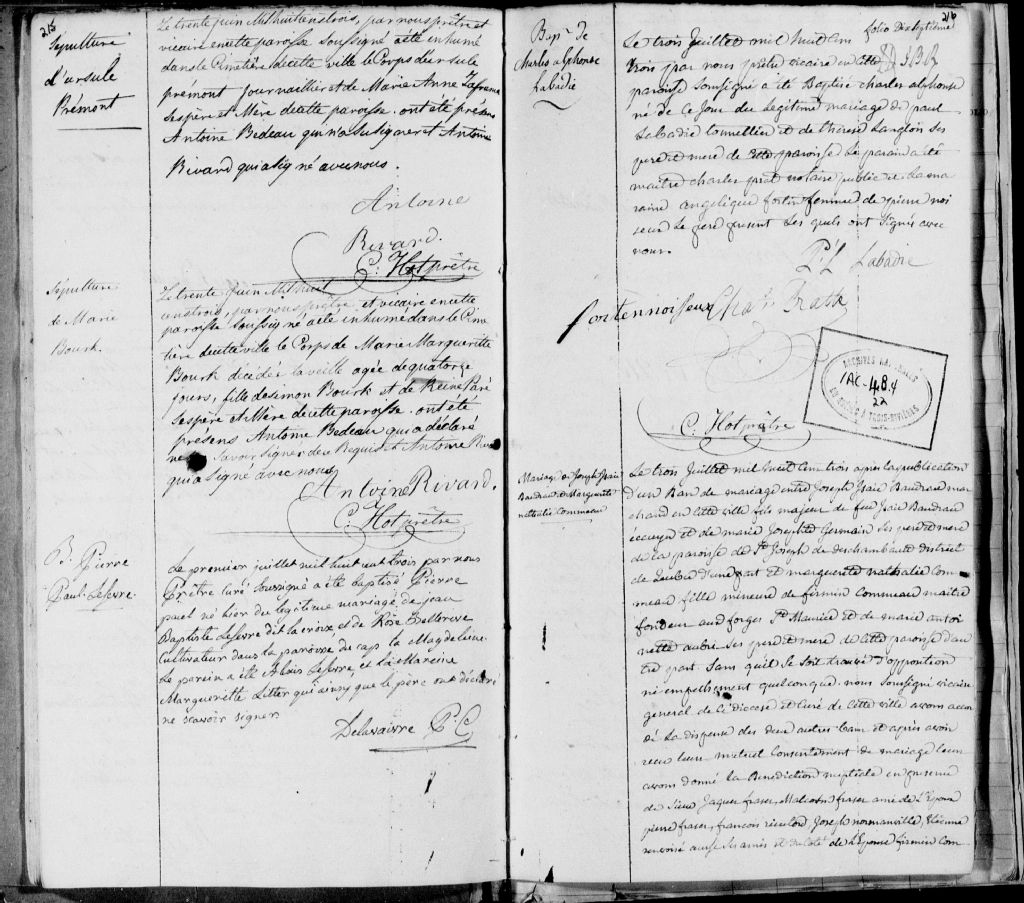 215
Sepulture
d'ursule
Prémont
Le trente juin Mil huit cens trois, par nous prêtre et
vicaire en cette paroisse Soussigné a été inhumé
dans le Cimetière de cette ville le Corps d'ursule
premont journaillier et de Marie Anne
Ses père et Mère de cette paroisse. ont été présens
Antoine Bedeau qui n'a su signer et Antoine
Rivard qui a signé avec nous.
Antoine
Rivard.
C. Hot prêtre
Sepulture
de Marie
Bourk.
Le trente juin Mil huit
cens trois, par nous prêtre et vicaire en cette
paroisse Soussigné a été inhumé dans le Cime
tière de cette ville le Corps de Marie Margueritte
Bourk décédée la veille agée de quatorze
jours, fille de simon Bourk et de Reine Paré
Ses père et Mère de cette paroisse. ont été
présens Antoine Bedeau qui a déclaré
ne Savoir Signer de ce Requis et Antoine Riva
qui a Signé avec nous
Antoine Rivard.
C. Hot prêtre
B. Pierre
Paul Lefevre
Le premier juillet mil huit cent trois par nous
Prêtre curé soussigné a été baptisé Pierre
paul né hier du legitime mariage de jean
Baptiste Lefevre dit la croix, et de Rose
Cultivateur dans la paroisse du cap la Magdeleine
Le parein a été Alexis Lefevre, et la Mareine
Margueritte qui ainsy que le père ont déclaré
ne scavoir signer
Delavaivre P. C
216
Bap.e de
Charles alphonse
Labadie
folio Dixseptième
Le trois Juillet mil huit cen
trois par nous prêtre vicaire en cette
paroisse Soussigné a été Baptisé charles alphonse
né de ce Jour du Legitime mariage de paul
Labadie tonnellier et de therese Langlois Ses
pere et mere de cette paroisse Le parain a été
maitre charles prat notaire public et La ma
raine angelique fortin femme de pierre noi
seux Le pere present Les quels ont Signés avec
nous.
P. L Labadie
forten noiseux Chas. Pratt
ARCHIVES NATIONALES
1AC-48.4
22
DU QUÉBEC À TROIS-RIVIÈRES
C. Hot prêtre
Mariage de Joseph Isaie
Baudrau et Marguerite
nathalie Commeau
Le trois Juillet mil huit Cen trois après la publication
d'un Ban de mariage entre Joseph Isaie Baudrau mar
chand en Cette ville fils majeur de feu Isaie Baudrau
ecuyer et de marie Josephte Germain Ses pere et mere
de la paroisse de St Joseph de deschambault district
de Quebec d'une part et marguerite nathalie Com
meau fille mineure de firmin Commeau maitre
fondeur aux forges St Maurice et de marie antoi
nette aubri Ses pere et mere de Cette paroisse d'au
tre part Sans quil Se Soit trouvé d'opposition
ni empêchement quelconque nous Soussigné vicaire
general de Ce diocese et Curé de Cette ville avons accor
dé La dispense des deux autres bans et après avoir
recu leur mutuel Consentement de mariage leur
avons donné la Benediction nuptiale en presence
de Sieur Jaques fraser, Malcolm fraser amis de L'Epoux
pierre fraser, francois rieutord, Joseph normanville, Etienne
aussi Ses amis et du Coté de L'Epouse firmin Com